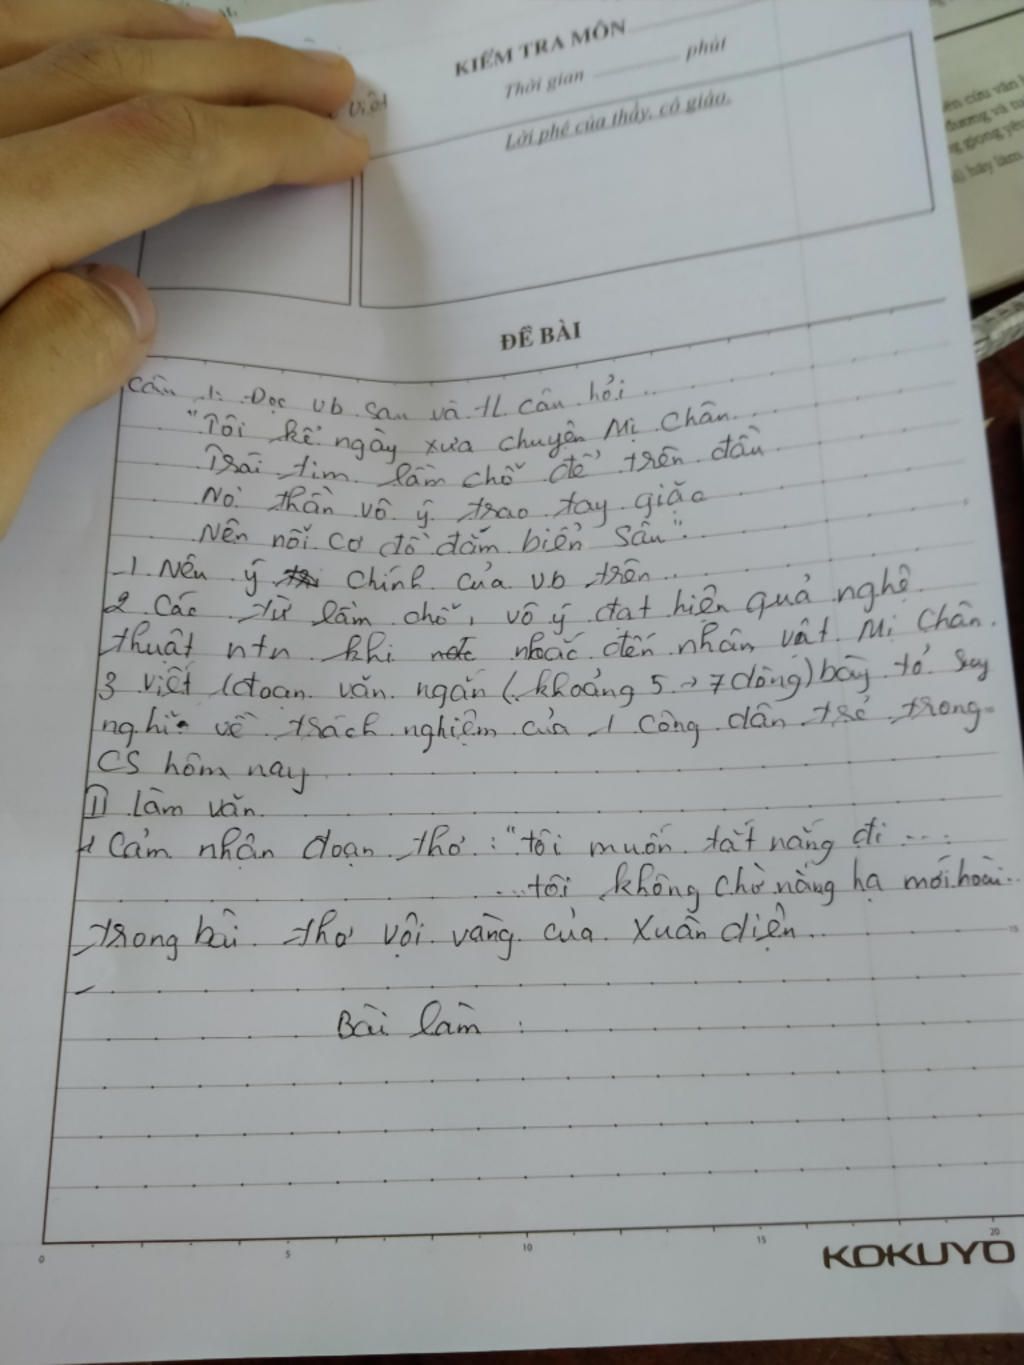 KIỂM TRA MÔN
Thời gian phút
Việt
Lời phê của thầy, cô giáo.
ĐỀ BÀI
Câu 1: Đọc vb sau và TL câu hỏi
"Tôi kể ngày xưa chuyện Mị Châu
Trái tim lầm chỗ để trên đầu
Nỏ thần vô ý trao tay giặc
Nên nỗi cơ đồ đắm biển sâu".
1. Nêu ý chính của vb trên
2 Các từ lầm chỗ, vô ý đạt hiệu quả nghệ
thuật ntn khi nhắc đến nhân vật Mị Châu.
3 viết 1 đoạn văn ngắn (khoảng 5 → 7 dòng) bày tỏ suy
nghĩ về trách nghiệm của 1 công dân trẻ trong
CS hôm nay
II Làm văn
Cảm nhận đoạn thơ: "tôi muốn tắt nắng đi ...
...tôi không chờ nắng hạ mới hoài..
trong bài thơ vội vàng của Xuân diệu
Bài làm :
0 5 10 15 20
KOKUYO